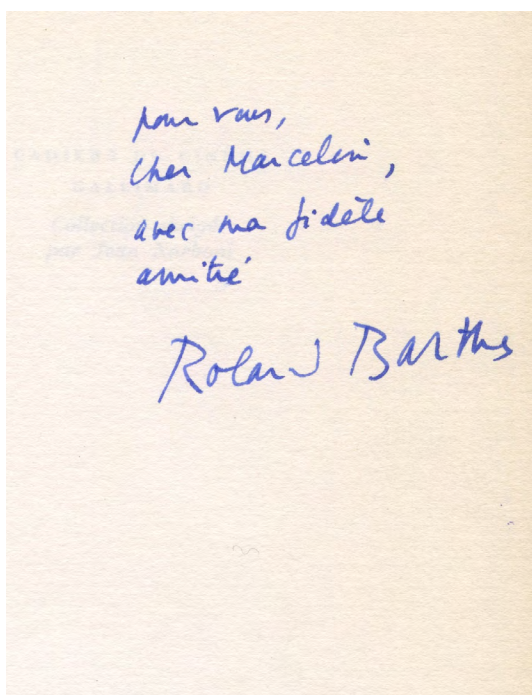 pour vous,
cher Marcelin,
avec ma fidèle
amitié
Roland Barthes